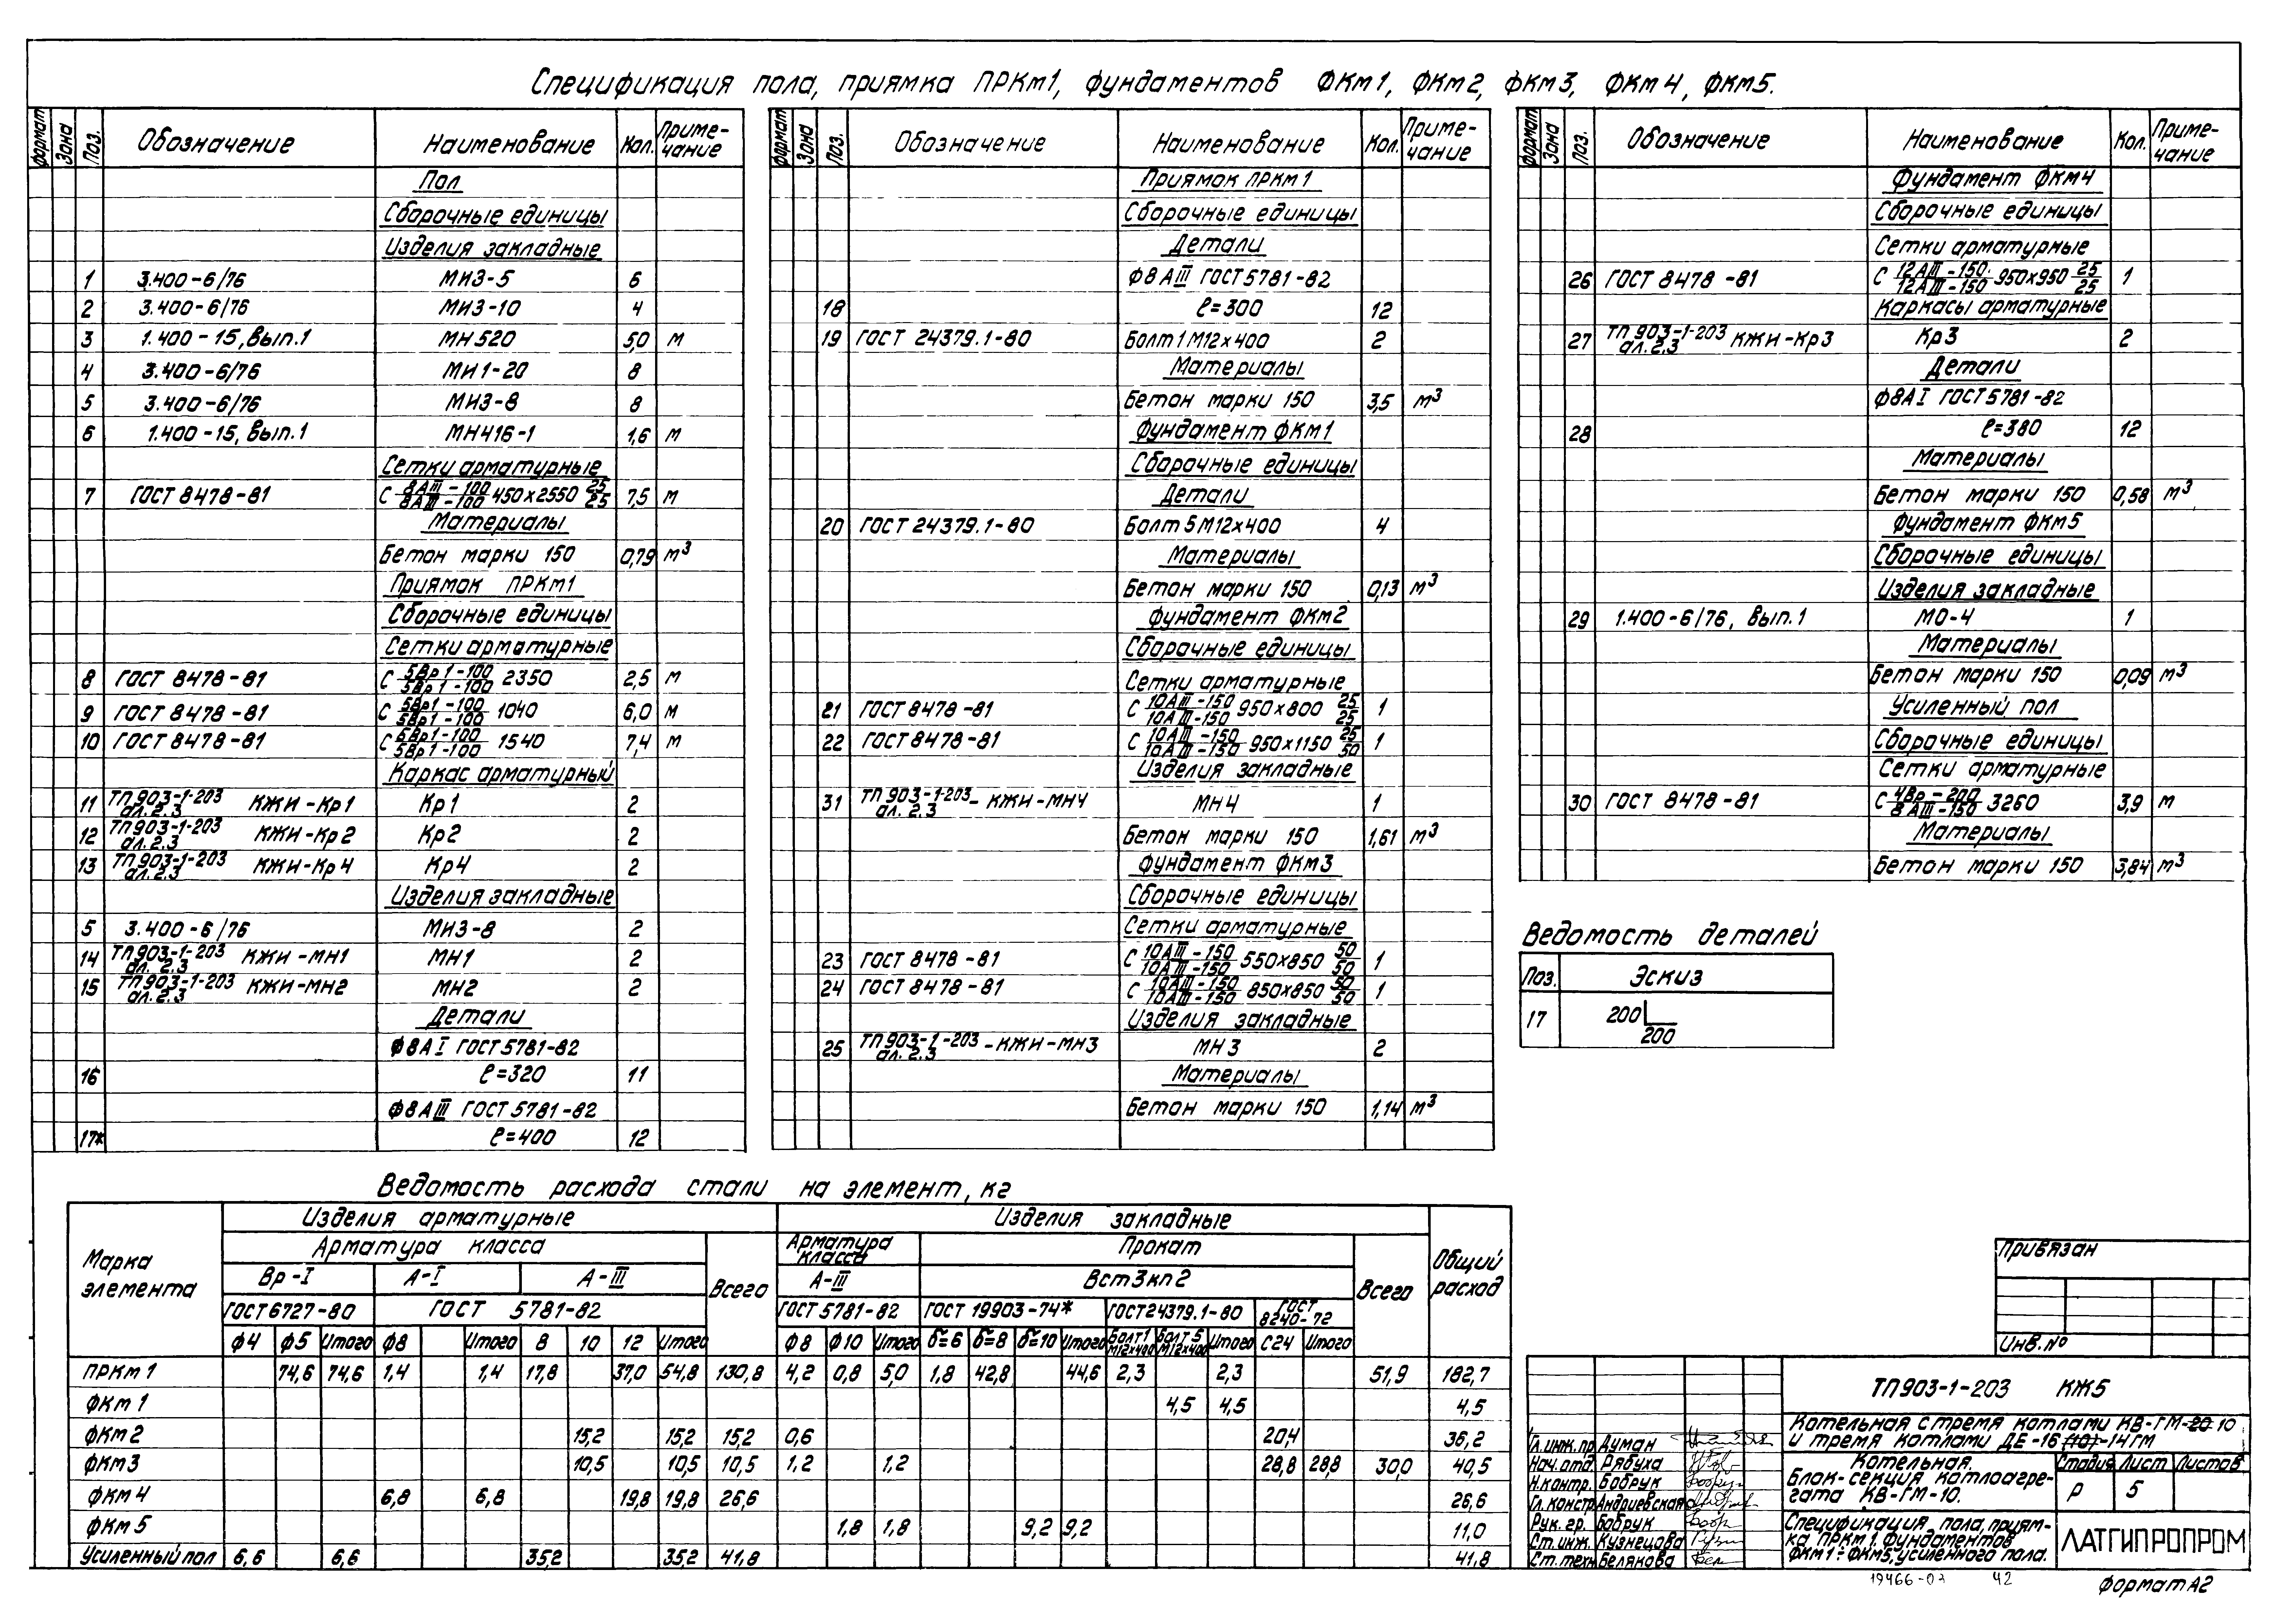 Спецификация пола, приямка ПРКм1, фундаментов ФКм1, ФКм2, ФКм3, ФКм4, ФКм5.
Формат Зона Поз. Обозначение Наименование Кол. Приме-чание
Пол
Сборочные единицы
Изделия закладные
1 3.400-6/76 МИЗ-5 6
2 3.400-6/76 МИЗ-10 4
3 1.400-15, вып.1 МН520 5,0 м
4 3.400-6/76 МИ1-20 8
5 3.400-6/76 МИЗ-8 8
6 1.400-15, вып.1 МН416-1 1,6 м
Сетки арматурные
7 ГОСТ 8478-81 С 8АIII-100/8АIII-100 450х2550 25/25 7,5 м
Материалы
Бетон марки 150 0,79 м³
Приямок ПРКм1
Сборочные единицы
Сетки арматурные
8 ГОСТ 8478-81 С 5Вр1-100/5Вр1-100 2350 2,5 м
9 ГОСТ 8478-81 С 5Вр1-100/5Вр1-100 1040 6,0 м
10 ГОСТ 8478-81 С 5Вр1-100/5Вр1-100 1540 7,4 м
Каркас арматурный
11 ТП 903-1-203 ал. 2.3 КЖИ-Кр1 Кр1 2
12 ТП 903-1-203 ал. 2.3 КЖИ-Кр2 Кр2 2
13 ТП 903-1-203 ал. 2.3 КЖИ-Кр4 Кр4 2
Изделия закладные
5 3.400-6/76 МИЗ-8 2
14 ТП 903-1-203 ал. 2.3 КЖИ-МН1 МН1 2
15 ТП 903-1-203 ал. 2.3 КЖИ-МН2 МН2 2
Детали
Ф8АI ГОСТ 5781-82
16 ℓ=320 11
Ф8АIII ГОСТ 5781-82
17* ℓ=400 12
Формат Зона Поз. Обозначение Наименование Кол. Приме-чание
Приямок ПРКм1
Сборочные единицы
Детали
Ф8АIII ГОСТ 5781-82
18 ℓ=300 12
19 ГОСТ 24379.1-80 Болт 1 М12х400 2
Материалы
Бетон марки 150 3,5 м³
Фундамент ФКм1
Сборочные единицы
Детали
20 ГОСТ 24379.1-80 Болт 5 М12х400 4
Материалы
Бетон марки 150 0,13 м³
Фундамент ФКм2
Сборочные единицы
Сетки арматурные
21 ГОСТ 8478-81 С 10АIII-150/10АIII-150 950х800 25/25 1
22 ГОСТ 8478-81 С 10АIII-150/10АIII-150 950х1150 25/50 1
Изделия закладные
31 ТП 903-1-203 ал. 2.3 -КЖИ-МН4 МН4 1
Бетон марки 150 1,61 м³
Фундамент ФКм3
Сборочные единицы
Сетки арматурные
23 ГОСТ 8478-81 С 10АIII-150/10АIII-150 550х850 50/50 1
24 ГОСТ 8478-81 С 10АIII-150/10АIII-150 850х850 50/50 1
Изделия закладные
25 ТП 903-1-203 ал. 2.3 -КЖИ-МН3 МН3 2
Материалы
Бетон марки 150 1,14 м³
Формат Зона Поз. Обозначение Наименование Кол. Приме-чание
Фундамент ФКм4
Сборочные единицы
Сетки арматурные
26 ГОСТ 8478-81 С 12АIII-150/12АIII-150 950х950 25/25 1
Каркасы арматурные
27 ТП 903-1-203 ал. 2.3 КЖИ-Кр3 Кр3 2
Детали
Ф8АI ГОСТ 5781-82
28 ℓ=380 12
Материалы
Бетон марки 150 0,58 м³
Фундамент ФКм5
Сборочные единицы
Изделия закладные
29 1.400-6/76, вып.1 МО-4 1
Материалы
Бетон марки 150 0,09 м³
Усиленный пол
Сборочные единицы
Сетки арматурные
30 ГОСТ 8478-81 С 4Вр-200/8АIII-150 3260 3,9 м
Материалы
Бетон марки 150 3,84 м³
Ведомость деталей
Поз. Эскиз
17 200 200
Ведомость расхода стали на элемент, кг
Марка элемента Изделия арматурные Изделия закладные Общий расход
Арматура класса Всего Арматура класса Прокат Всего
Вр-I А-I А-III А-III Вст3кп2
ГОСТ 6727-80 ГОСТ 5781-82 ГОСТ 5781-82 ГОСТ 19903-74* ГОСТ 24379.1-80 ГОСТ 8240-72
Ф4 Ф5 Итого Ф8 Итого 8 10 12 Итого Ф8 Ф10 Итого δ=6 δ=8 δ=10 Итого Болт 1 М12х400 Болт 5 М12х400 Итого С24 Итого
ПРКм1 74,6 74,6 1,4 1,4 17,8 37,0 54,8 130,8 4,2 0,8 5,0 1,8 42,8 44,6 2,3 2,3 51,9 182,7
ФКм1 4,5 4,5 4,5
ФКм2 15,2 15,2 15,2 0,6 20,4 36,2
ФКм3 10,5 10,5 10,5 1,2 1,2 28,8 28,8 30,0 40,5
ФКм4 6,8 6,8 19,8 19,8 26,6 26,6
ФКм5 1,8 1,8 9,2 9,2 11,0
Усиленный пол 6,6 6,6 35,2 35,2 41,8 41,8
Привязан
Инв.№
ТП 903-1-203 КЖ5
Котельная с тремя котлами КВ-ГМ-20 10
и тремя котлами ДЕ-16 (10)-14ГМ
Гл.инж.пр. Думан
Нач.отд. Рябуха
Н.контр. Бобрук
Гл.констр. Андриевская
Рук.гр. Бобрук
Ст.инж. Кузнецова
Ст.техн. Белякова
Котельная.
Блок-секция котлоагре-
гата КВ-ГМ-10.
Стадия Лист Листов
Р 5
Спецификация пола, приям-
ка ПРКм1, фундаментов
ФКм1÷ФКм5, усиленного пола.
ЛАТГИПРОПРОМ
42
Формат А2